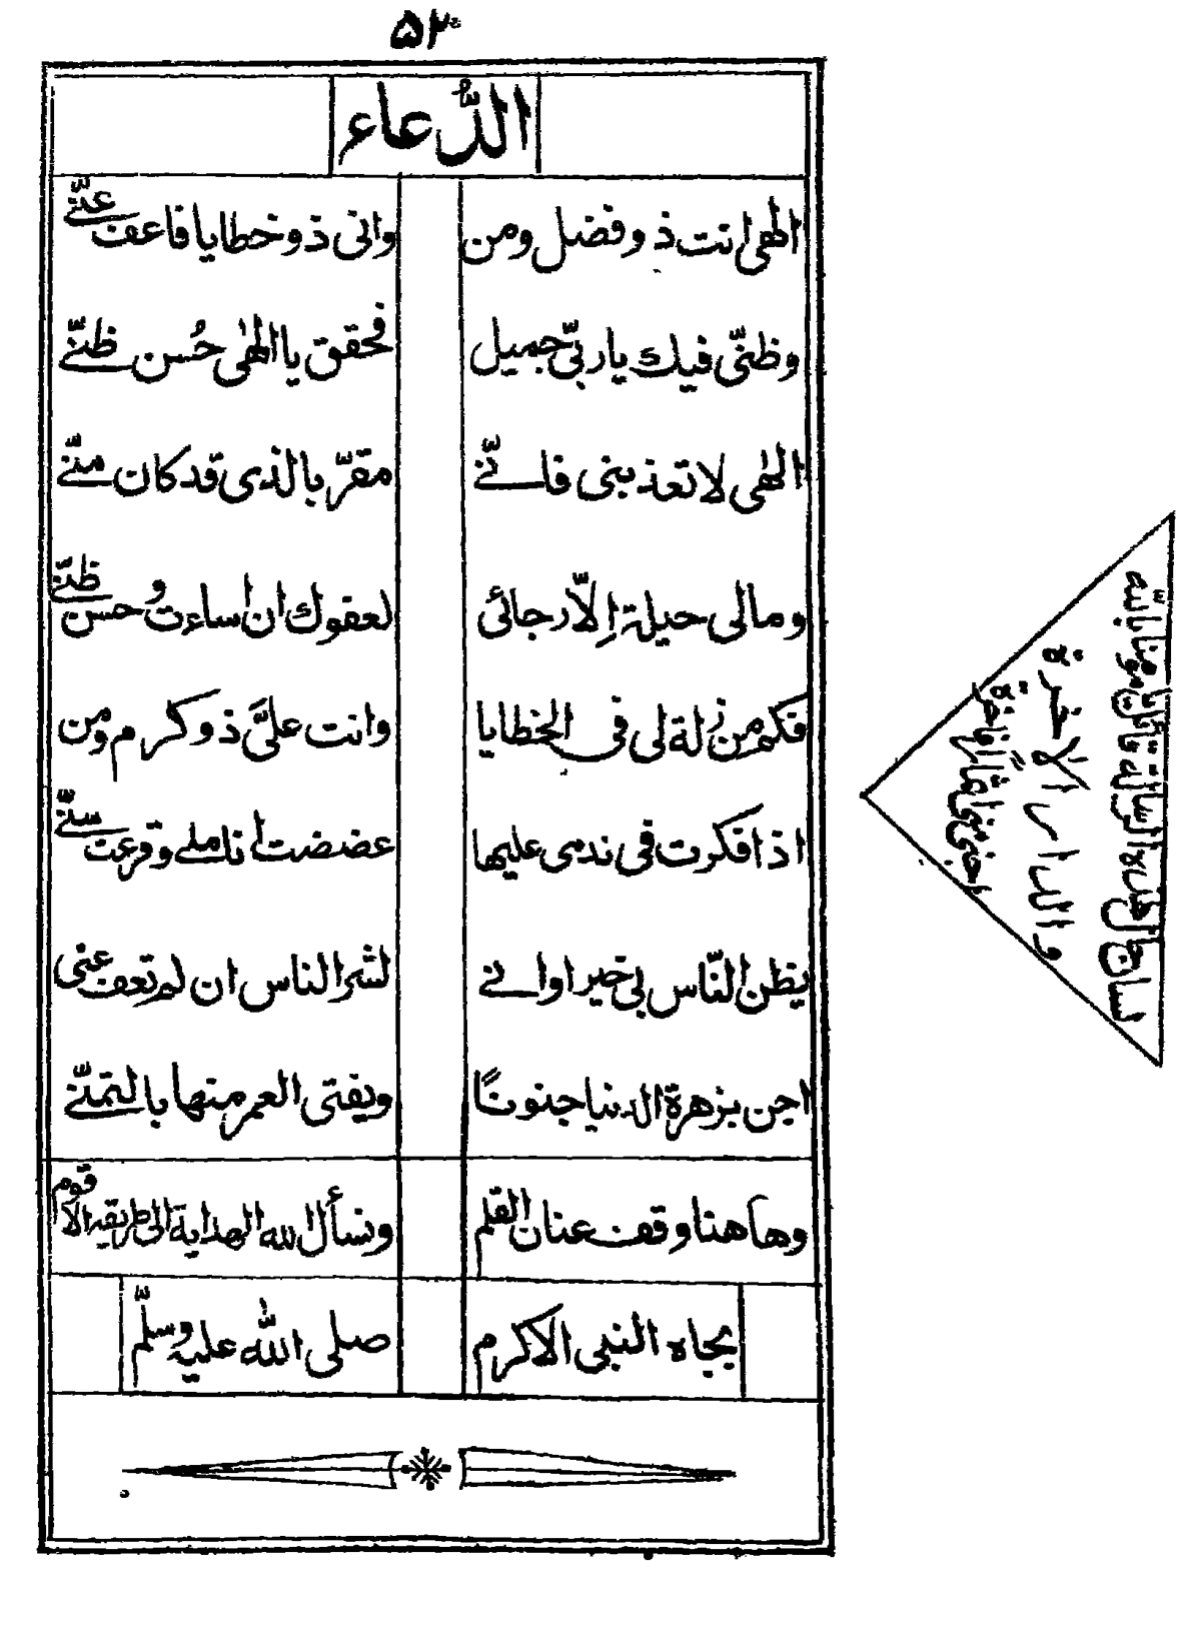 ۵۲۰
الدُّعاء
الٰهی انت ذو فضل ومن وانی ذو خطایا فاعف عنّے
وظنّی فیك یا ربّی جمیل فحقق یا الٰهی حُسن ظنّے
الٰهی لا تعذ بنی فانّے مقرّ بالذی قد كان منّے
ومالی حیلة اِلّا رجائی لعفوك ان اساءت وحسن ظنّے
فكم من زلة لی فی الخطایا وانت علیَّ ذو كرم ومن
اذا فكرت فی ندمی علیها عضضت اناملے وقرعت سنّے
یظن النّاس بی خیرا وانے لشر الناس ان لم تعف عنی
اجن بزهرة الدنیا جنونًا ویفنی العمر منها بالتمنّے
وهاهنا وقف عنان القلم ونسأل الله الهدایة الی طریقه الاقوم
بجاه النبی الاكرم صلی اللّٰه علیه وسلّم
والدار الاخرة